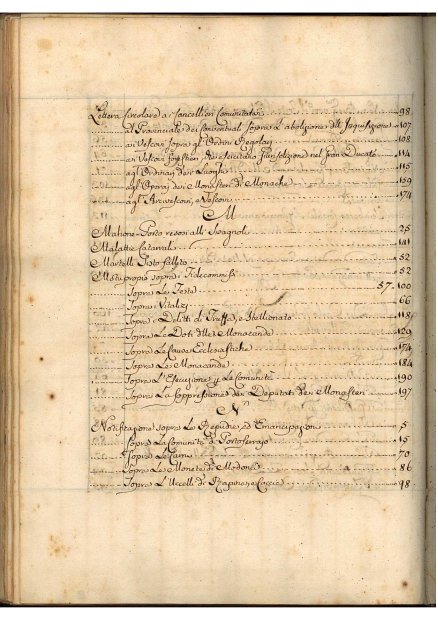 Lettera Circolare a Cancellieri Comunitativi 98
al Provinciale dei Conventuali sopra l'abolizione dell' Inquisizione 107
ai Vescovi sopra gl'Ordini Regolari 108
ai Vescovi che esercitano Giurisdizione nel Gran Ducato 114
agl'Ordinari dei Luoghi 115
agl'Operai dei Monasteri di Monache 159
agl'Arcivescovi, e Vescovi 174
M
Mahone Porto reso alli Spagnoli 25
Malattie Catarrali 141
Martelli fallito 52
Motu proprio sopra i Fidecommissi 52
Sopra le Teste 57. 100
Sopra i Vitalizi 66
Sopra i Delitti di Truffa, e Stellionato 118
Sopra le Doti delle Monacande 129
Sopra le Cause Ecclesiastiche 174
Sopra le Monacande 184
Sopra l'Esecuzione le Comunità 190
Sopra la Soppressione dei Deputati dei Monasteri 197
N
Notificazione sopra le Repudie, ed Emancipazioni 5
Sopra la Comunità di Portoferrajo 15
Sopra le Carni 70
Sopra le Monete di 86
Sopra l'Uccelli di Rapina, e Caccia 98